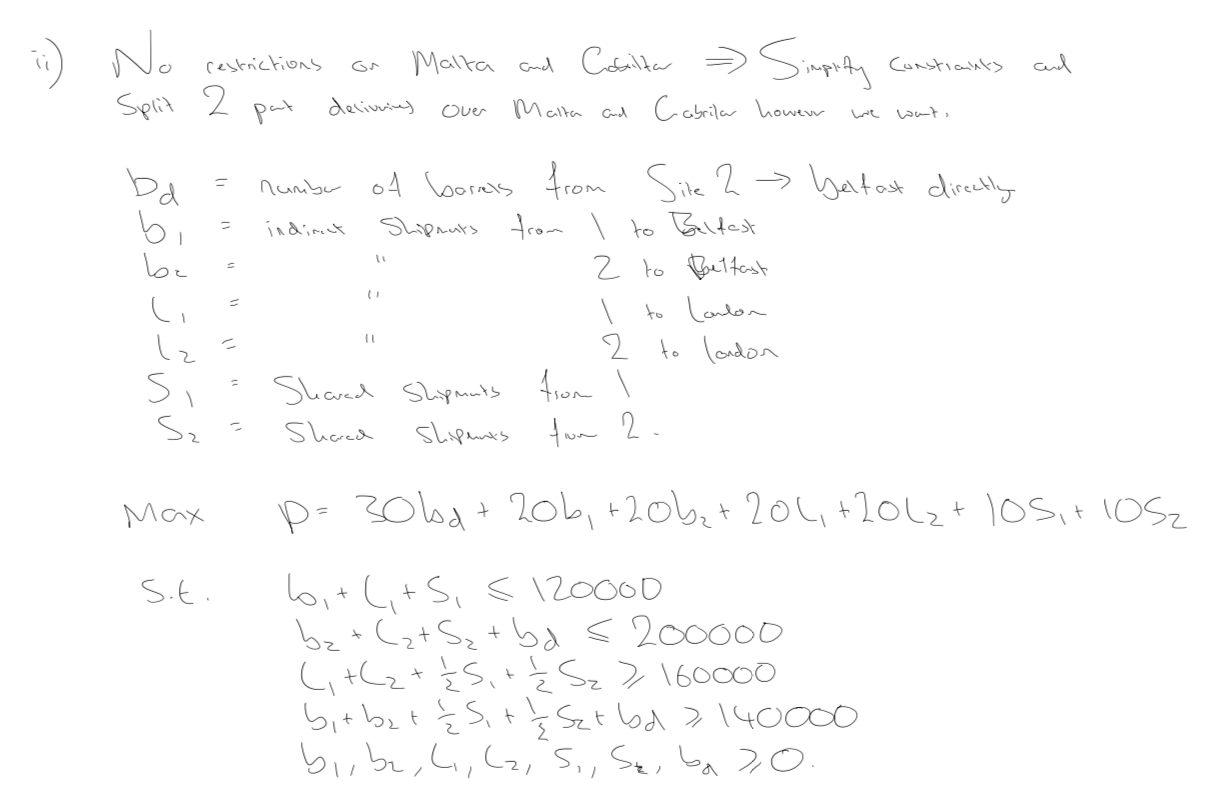 ii) No restrictions on Malta and Gabriltar ⇒ Simplify constraints and
Split 2 part deliveries over Malta and Gabrilar however we want.
b_d = number of barrels from Site 2 → belfast directly
b₁ = indirect Shipments from 1 to Belfast
b₂ = " 2 to Belfast
l₁ = " 1 to London
l₂ = " 2 to london
S₁ = Shared Shipments from 1
S₂ = Shared Shipments from 2.
Max p = 30b_d + 20b₁ + 20b₂ + 20l₁ + 20l₂ + 10S₁ + 10S₂
S.t. b₁ + l₁ + S₁ ≤ 120000
b₂ + l₂ + S₂ + b_d ≤ 200000
l₁ + l₂ + ½S₁ + ½S₂ ≥ 160000
b₁ + b₂ + ½S₁ + ½S₂ + b_d ≥ 140000
b₁, b₂, l₁, l₂, S₁, S₂, b_d ≥ 0.